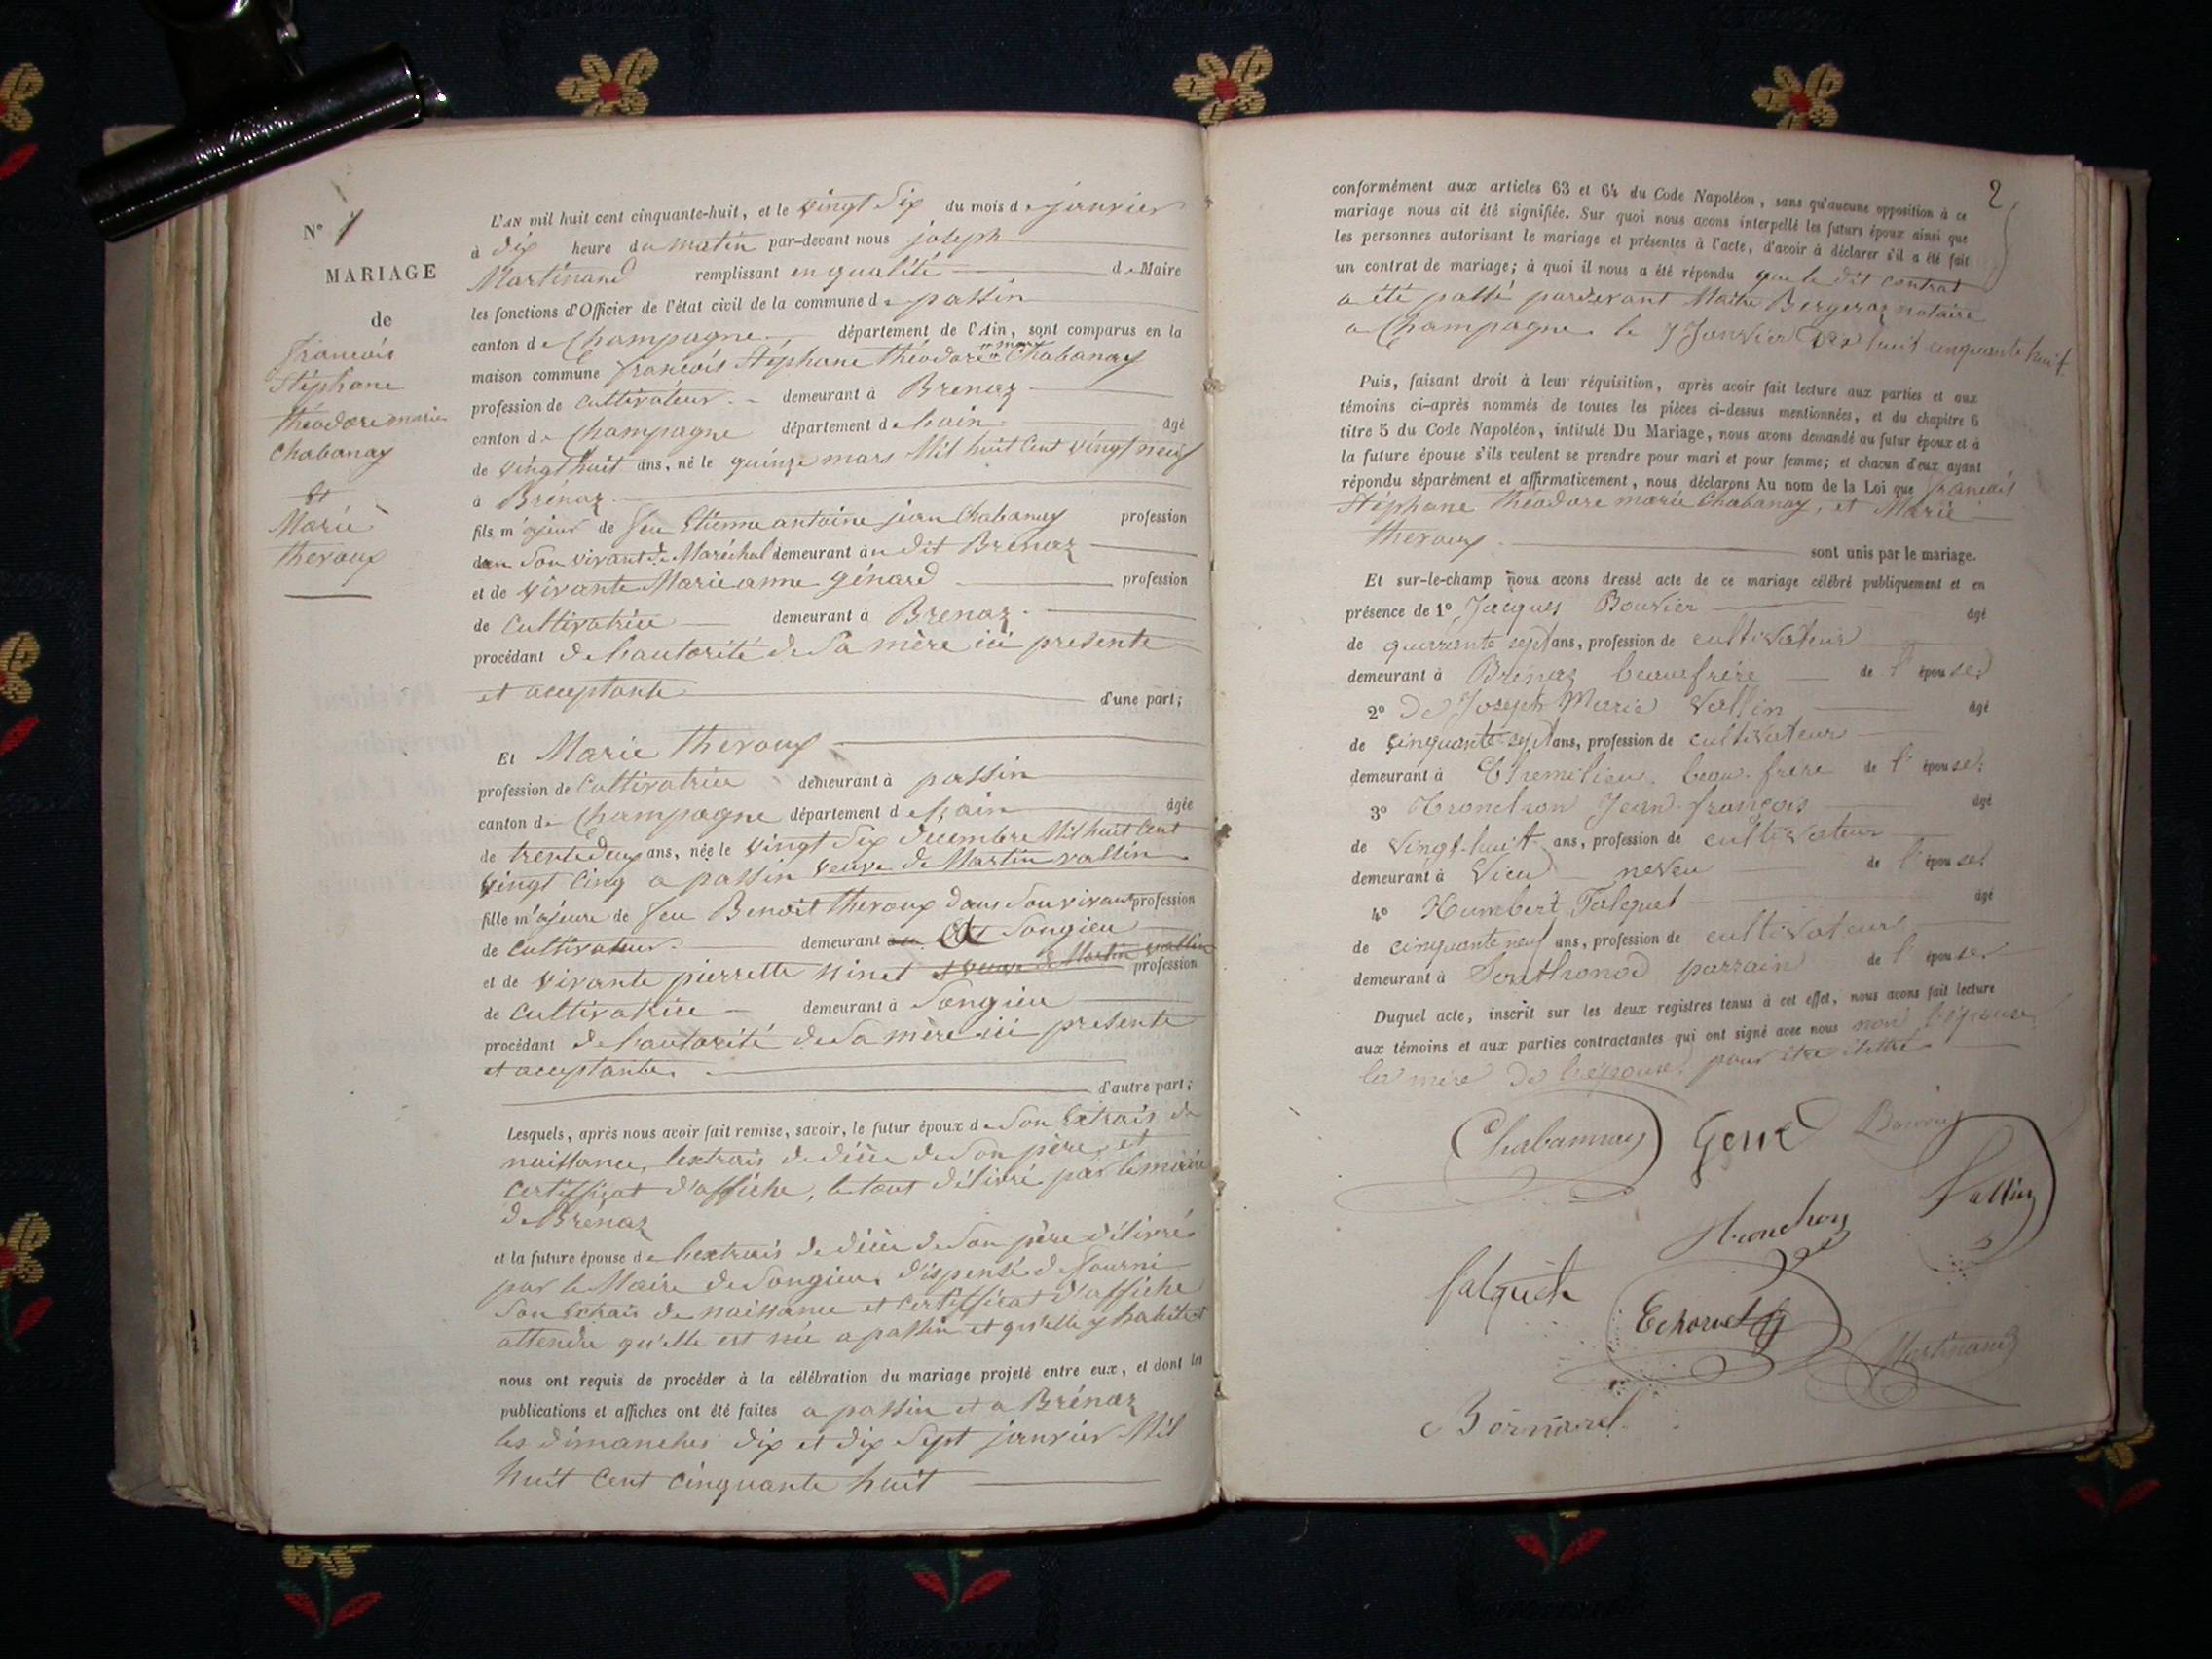 N° 1
MARIAGE
de
françois
Stéphane
théodore marie
Chabanay
Et
Marie
theroux
L'AN mil huit cent cinquante-huit, et le vingt Six du mois de janvier
à dix heure du matin par-devant nous joseph
Martinand remplissant en qualité de Maire
les fonctions d'Officier de l'état civil de la commune de passin
canton de Champagne département de l'Ain, sont comparus en la
maison commune françois Stéphane théodore marie Chabanay
profession de cultivateur demeurant à Brenaz
canton de Champagne département de lain âgé
de vingt huit ans, né le quinze mars Mil huit Cent vingt neuf
à Brénaz
fils majeur de feu Etienne antoine jean Chabanay profession
dan Son vivant de Maréchal demeurant au dit Brénaz
et de vivante Marie anne génard profession
de Cultivatrice demeurant à Brenaz
procédant de l'autorité de Sa mère ici presente
et acceptante d'une part;
Et Marie theroux
profession de Cultivatrice demeurant à passin
canton de Champagne département de l'ain âgée
de trente deux ans, née le vingt Six decembre Mil huit Cent
vingt Cinq a passin veuve de Martin vallin
fille majeure de feu Benoit theroux dans Son vivant profession
de Cultivateur demeurant a Songieu
et de vivante pierrette ninet et veuve de Martin vallin profession
de Cultivatrice demeurant à Songieu
procédant de l'autorité de Sa mère ici presente
et acceptante
d'autre part;
Lesquels, après nous avoir fait remise, savoir, le futur époux de Son Extrais de
naissance, lextrais de décès de Son père, et
certifficat d'affiche, le tout délivré par le maire
de Brénaz
et la future épouse de lextrais de décès de Son père délivré
par le Maire de Songieu, dispensé de fourni
Son Extrais de naissance et certifficat d'affiche
attendu qu'elle est née a passin et qu'elle y habite
nous ont requis de procéder à la célébration du mariage projeté entre eux, et dont les
publications et affiches ont été faites a passin et a Brénaz
les dimanches dix et dix Sept janvier Mil
huit Cent Cinquante huit
2
conformément aux articles 63 et 64 du Code Napoléon, sans qu'aucune opposition à ce
mariage nous ait été signifiée. Sur quoi nous avons interpellé les futurs époux ainsi que
les personnes autorisant le mariage et présentes à l'acte, d'avoir à déclarer s'il a été fait
un contrat de mariage; à quoi il nous a été répondu que le dit contrat
a été passé pardevant Maitre Bergeraz notaire
a Champagne le 7 Janvier dix huit cinquante huit
Puis, faisant droit à leur réquisition, après avoir fait lecture aux parties et aux
témoins ci-après nommés de toutes les pièces ci-dessus mentionnées, et du chapitre 6
titre 5 du Code Napoléon, intitulé Du Mariage, nous avons demandé au futur époux et à
la future épouse s'ils veulent se prendre pour mari et pour femme; et chacun d'eux ayant
répondu séparément et affirmativement, nous déclarons Au nom de la Loi que françois
Stéphane théodore marie Chabanay, et Marie
theroux sont unis par le mariage.
Et sur-le-champ nous avons dressé acte de ce mariage célébré publiquement et en
présence de 1° Jacques Bouvier âgé
de quarante sept ans, profession de cultivateur
demeurant à Brénaz beaufrère de l'épouse
2° De Joseph Marie Vallin âgé
de cinquante-sept ans, profession de cultivateur
demeurant à beau-frère de l'épouse;
3° Jean-françois âgé
de Vingt-huit ans, profession de cultivateur
demeurant à Vieu neveu de l'épouse
4° Humbert Falquet âgé
de cinquante neuf ans, profession de cultivateur
demeurant à Southonod parrain de l'épouse
Duquel acte, inscrit sur les deux registres tenus à cet effet, nous avons fait lecture
aux témoins et aux parties contractantes qui ont signé avec nous non l'épouse
la mère de l'épouse pour être illettré
Chabannay
Vallin
falquet
Martinand
Bornarel